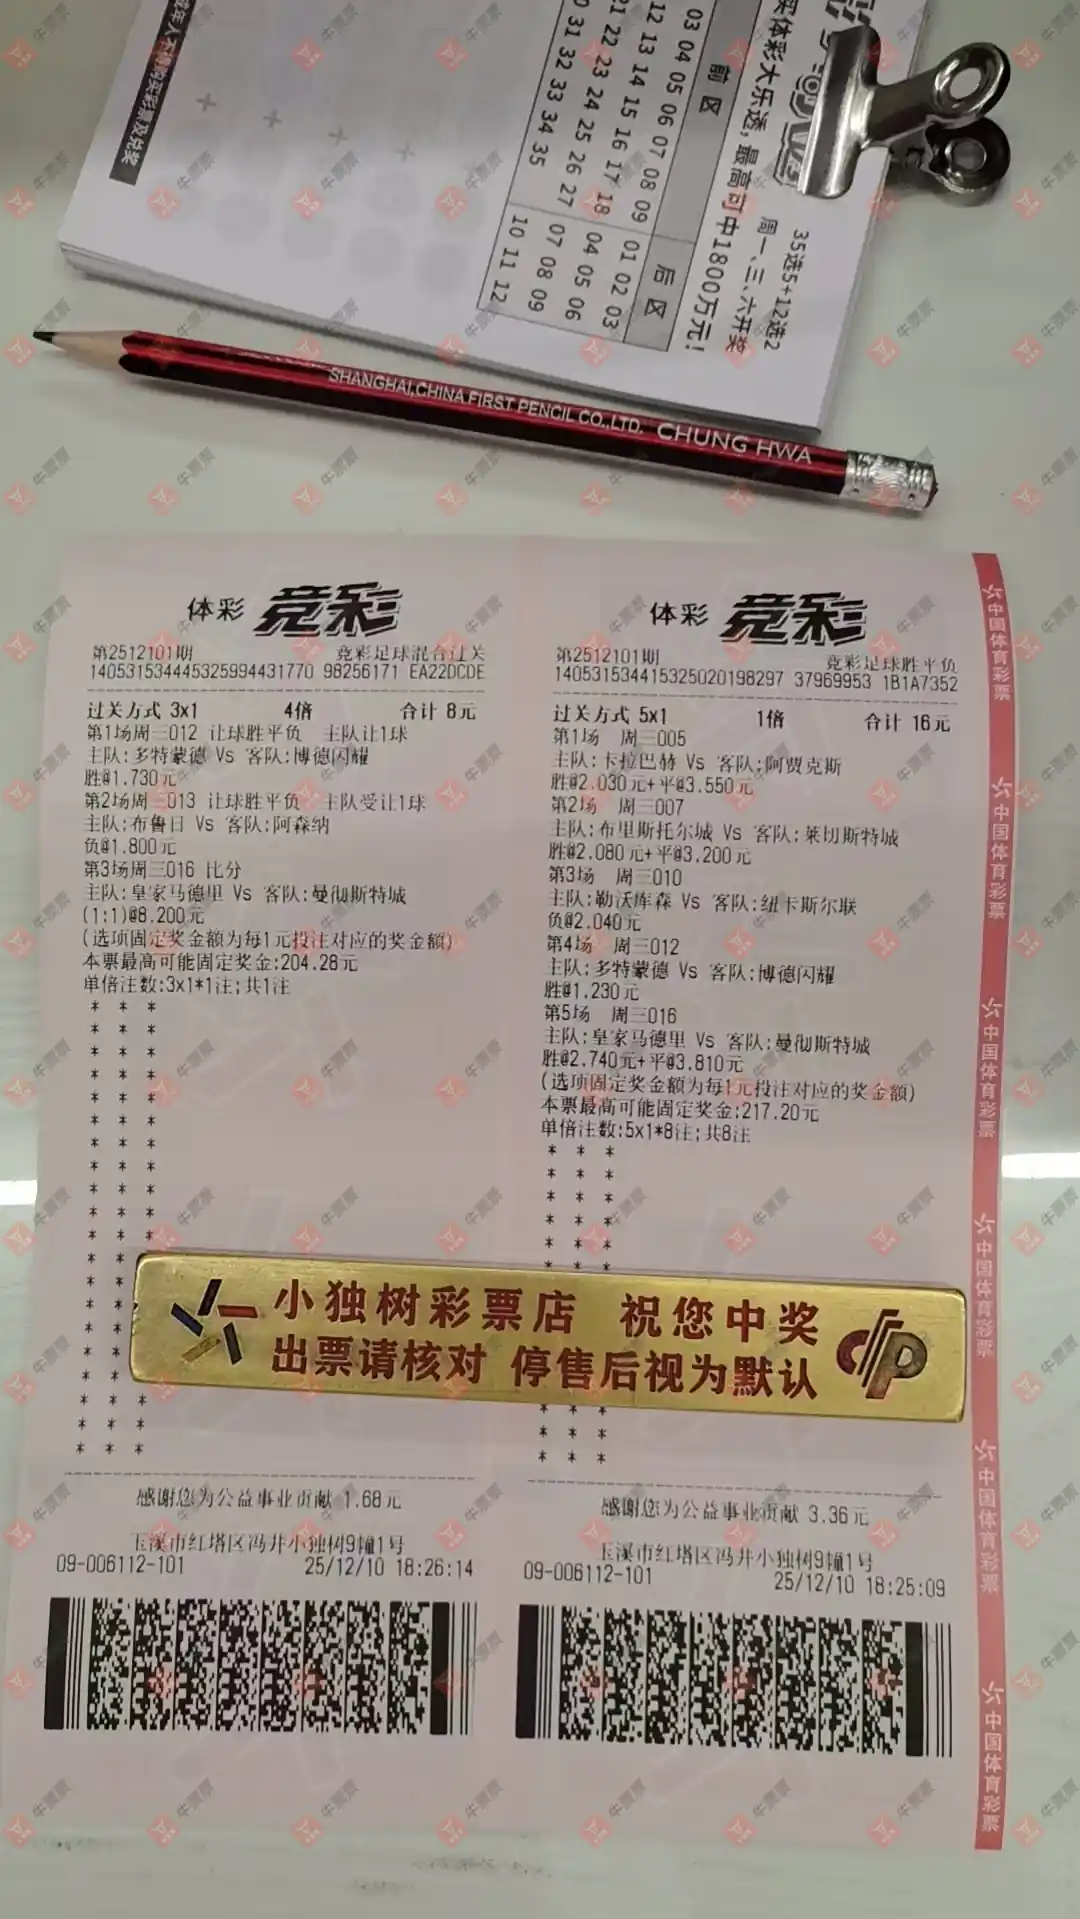 未成年人不得购买彩票及兑奖
35选5+12选2
周一、三、六开奖
买体彩大乐透,最高可中1800万元!
前区
后区
03 04 05 06 07 08 09
01 02 03
12 13 14 15 16 17 18
04 05 06
21 22 23 24 25 26 27
07 08 09
30 31 32 33 34 35
10 11 12
SHANGHAI,CHINA FIRST PENCIL CO.,LTD. CHUNG HWA
体彩 竞彩
第2512101期 竞彩足球混合过关
140531534445325994431770 98256171 EA22DCDE
过关方式 3x1 4倍 合计 8元
第1场周三012 让球胜平负 主队让1球
主队:多特蒙德 Vs 客队:博德闪耀
胜@1.730元
第2场周三013 让球胜平负 主队受让1球
主队:布鲁日 Vs 客队:阿森纳
负@1.800元
第3场周三016 比分
主队:皇家马德里 Vs 客队:曼彻斯特城
(1:1)@8.200元
(选项固定奖金额为每1元投注对应的奖金额)
本票最高可能固定奖金:204.28元
单倍注数:3x1*1注;共1注
感谢您为公益事业贡献 1.68元
玉溪市红塔区冯井小独树9幢1号
09-006112-101 25/12/10 18:26:14
体彩 竞彩
第2512101期 竞彩足球胜平负
140531534415325020198297 37969953 1B1A7352
过关方式 5x1 1倍 合计 16元
第1场 周三005
主队:卡拉巴赫 Vs 客队:阿贾克斯
胜@2.030元+平@3.550元
第2场 周三007
主队:布里斯托尔城 Vs 客队:莱切斯特城
胜@2.080元+平@3.200元
第3场 周三010
主队:勒沃库森 Vs 客队:纽卡斯尔联
负@2.040元
第4场 周三012
主队:多特蒙德 Vs 客队:博德闪耀
胜@1.230元
第5场 周三016
主队:皇家马德里 Vs 客队:曼彻斯特城
胜@2.740元+平@3.810元
(选项固定奖金额为每1元投注对应的奖金额)
本票最高可能固定奖金:217.20元
单倍注数:5x1*8注;共8注
感谢您为公益事业贡献 3.36元
玉溪市红塔区冯井小独树9幢1号
09-006112-101 25/12/10 18:25:09
小独树彩票店 祝您中奖
出票请核对 停售后视为默认
中国体育彩票
中国体育彩票
中国体育彩票
中国体育彩票
中国体育彩票
中国体育彩票
牛票票